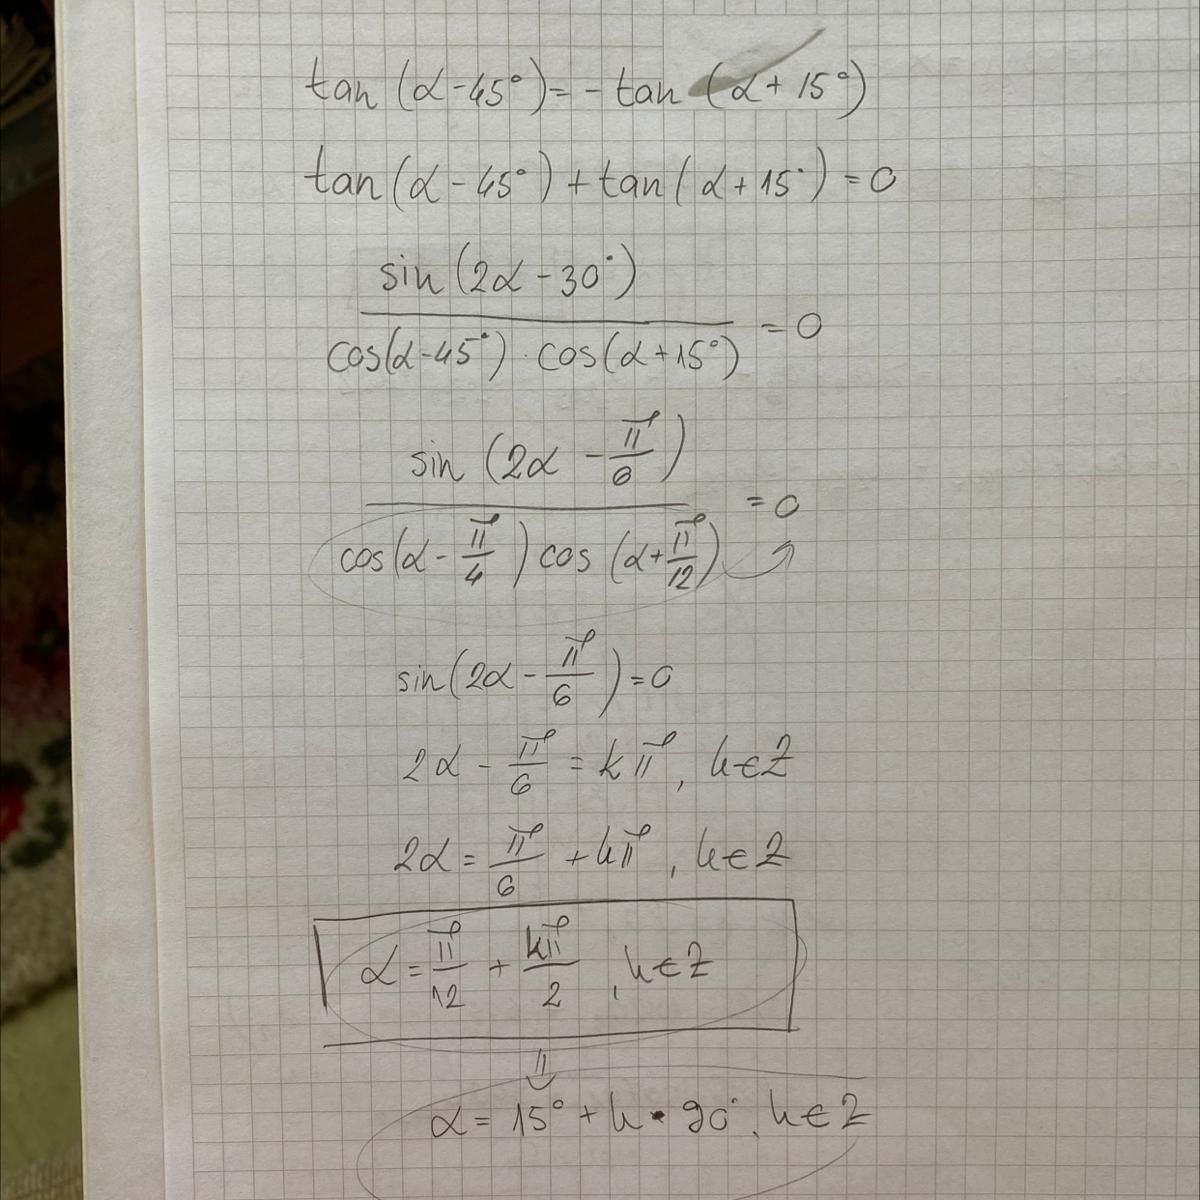 tan (α-45°)= - tan (α+15°)
tan(α-45°) + tan(α+15°) = 0
sin(2α-30°)
cos(α-45°) · cos(α+15°) = 0
sin (2α - π/6)
cos(α - π/4) cos (α+π/12) = 0
sin(2α - π/6) = 0
2α - π/6 = kπ, k∈Z
2α = π/6 + kπ, k∈Z
α = π/12 + kπ/2, k∈Z
⇓
α = 15° + k · 90°, k∈Z